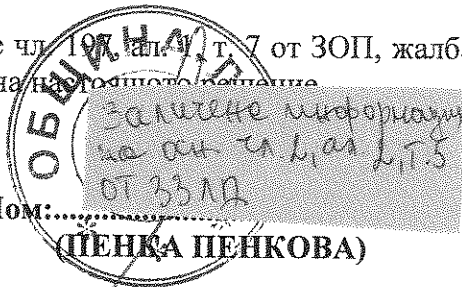 с чл. 197, ал. 1, т. 7 от ЗОП, жалб
на настоящото решение
ОБЩИНА
Заличена информация
на осн. чл. 2, ал. 2, т. 5
от ЗЗЛД
Пом:
(ПЕНКА ПЕНКОВА)